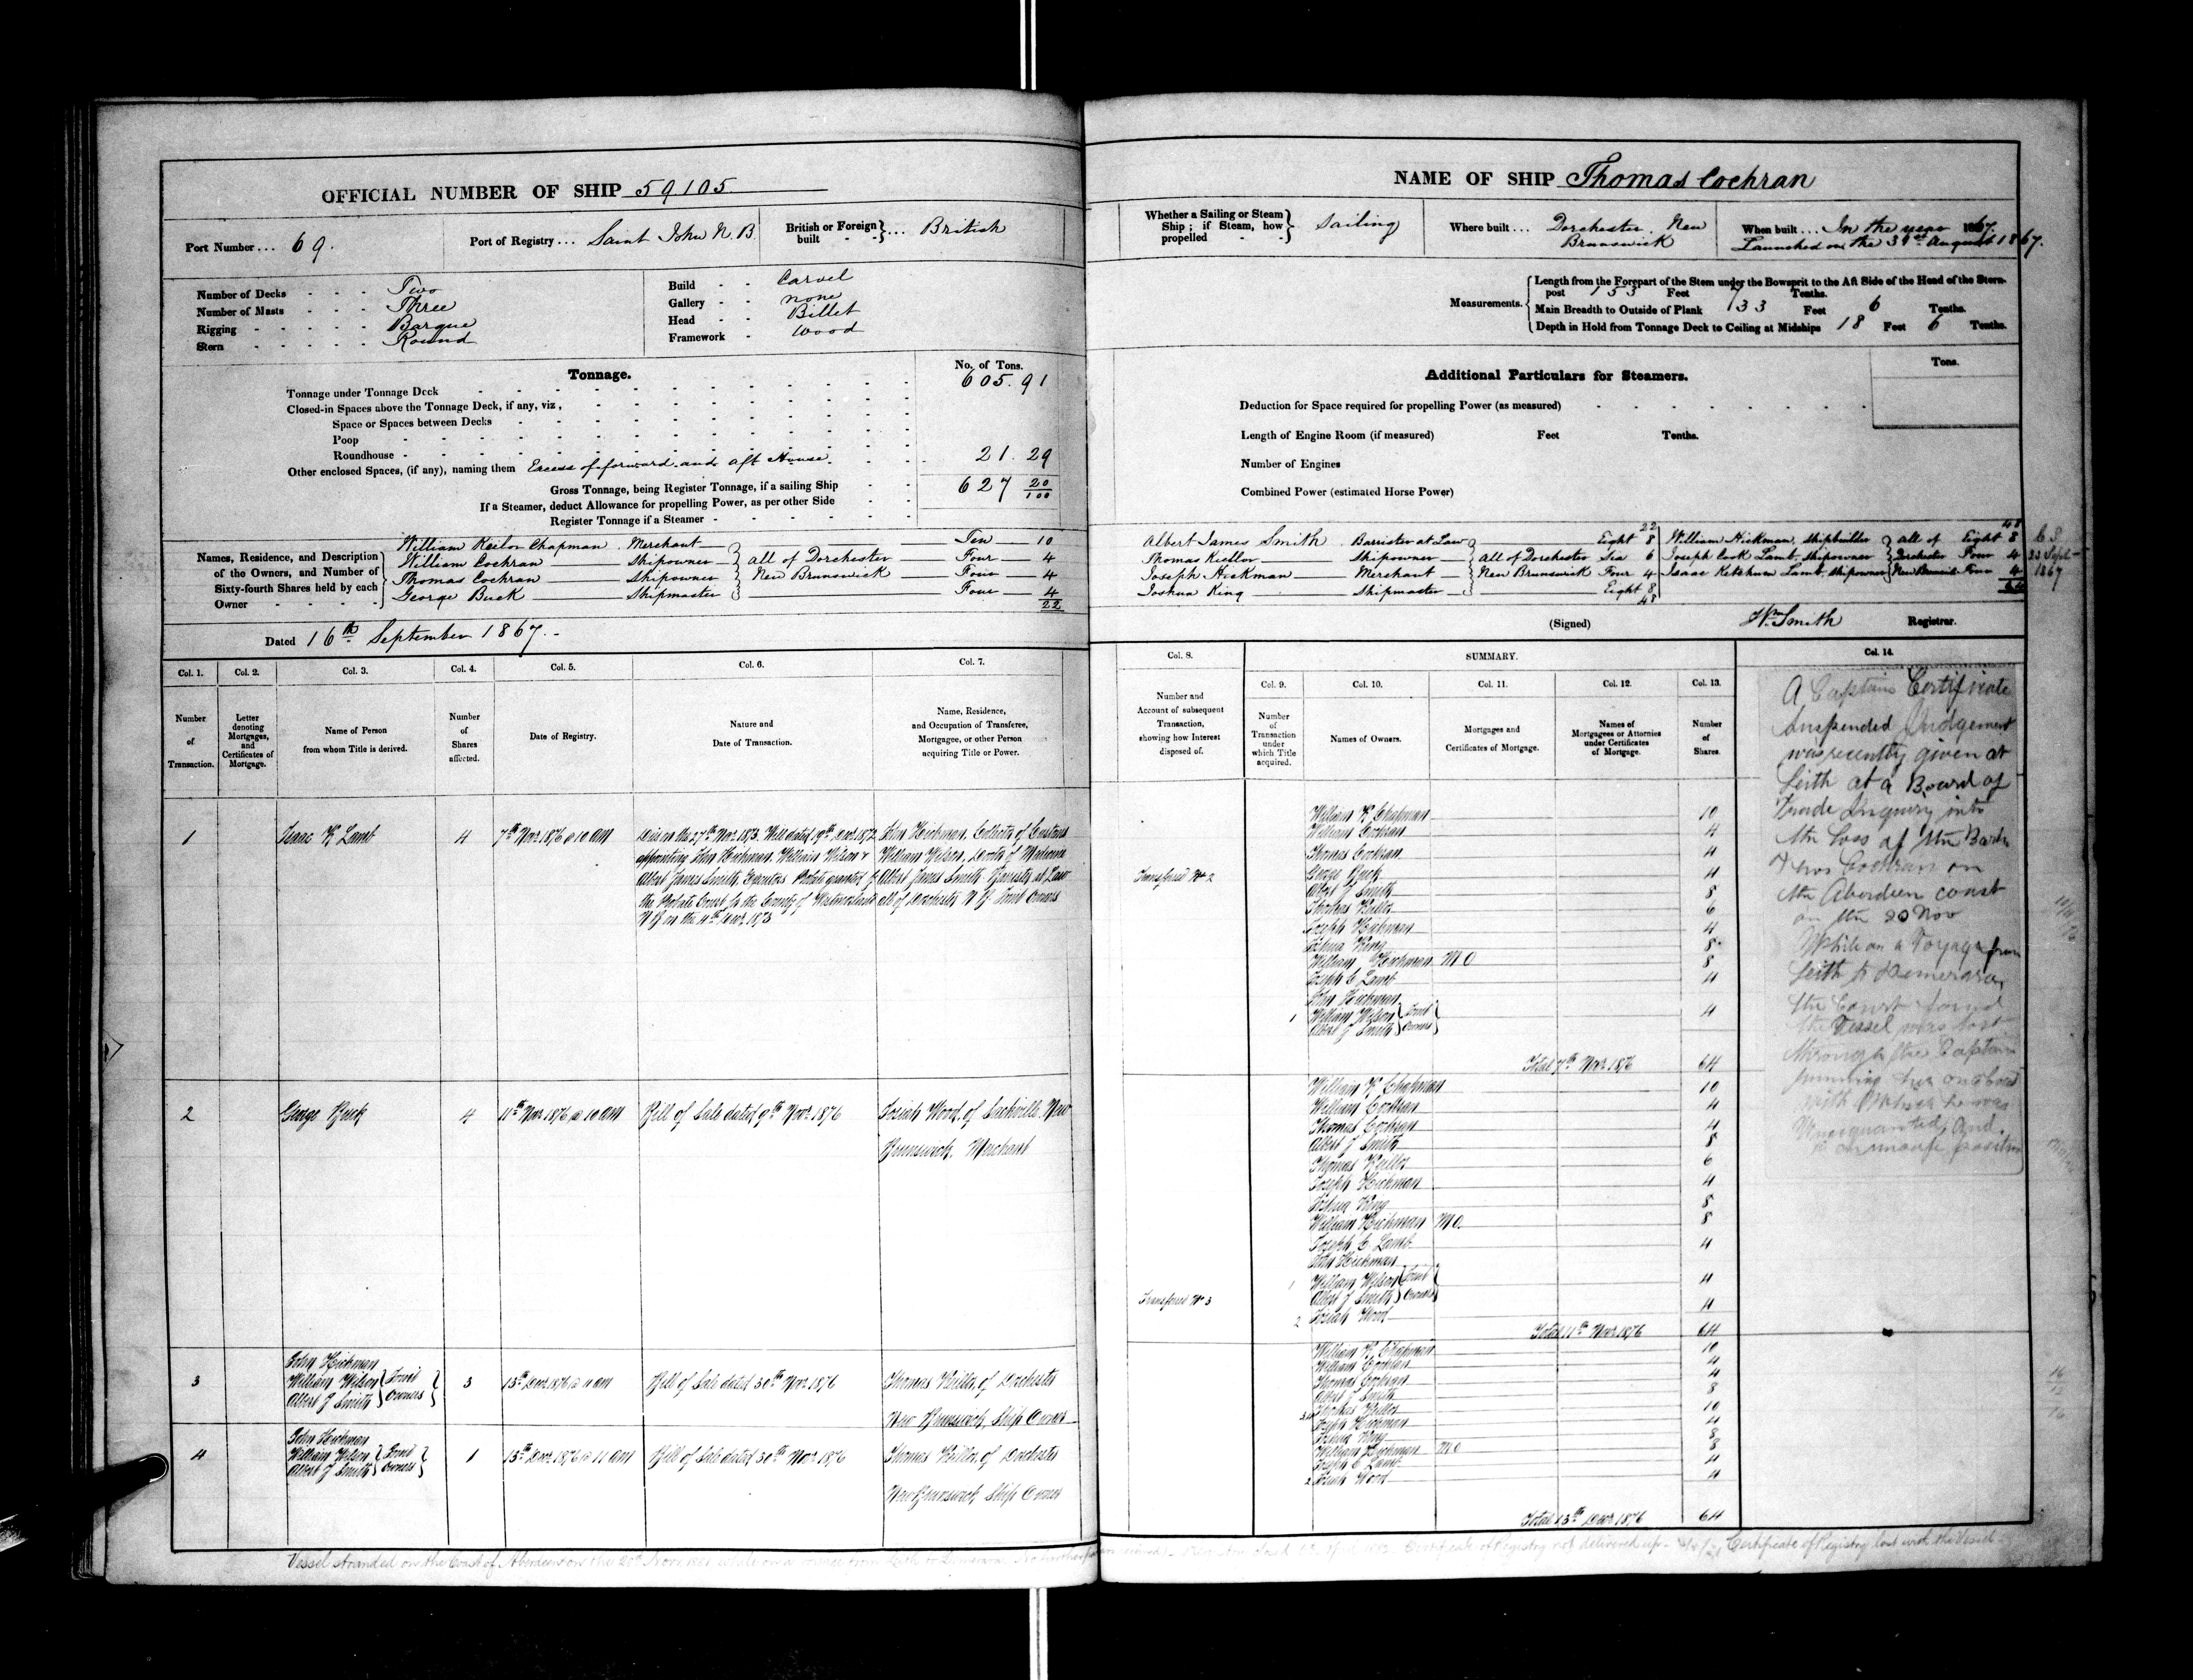 OFFICIAL NUMBER OF SHIP 59105
Port Number... 69.
Port of Registry... Saint John N.B.
British or Foreign built } ... British
Number of Decks - - - Two
Number of Masts - - - Three
Rigging - - - - - Barque
Stern - - - - - Round
Build - - Carvel
Gallery - - none
Head - - Billet
Framework - wood
Tonnage.
No. of Tons.
Tonnage under Tonnage Deck 605.91
Closed-in Spaces above the Tonnage Deck, if any, viz,
Space or Spaces between Decks
Poop
Roundhouse
Other enclosed Spaces, (if any), naming them Excess of forward and aft House 21.29
Gross Tonnage, being Register Tonnage, if a sailing Ship 627 20/100
If a Steamer, deduct Allowance for propelling Power, as per other Side
Register Tonnage if a Steamer
Names, Residence, and Description of the Owners, and Number of Sixty-fourth Shares held by each Owner
William Keilor Chapman Merchant Ten 10
William Cochran Shipowner all of Dorchester Four 4
Thomas Cochran Shipowner New Brunswick Four 4
George Buck Shipmaster Four 4
22
Dated 16th September 1867.
NAME OF SHIP Thomas Cochran
Whether a Sailing or Steam Ship; if Steam, how propelled } Sailing
Where built... Dorchester, New Brunswick
When built... In the year 1867.
Launched on the 31st August 1867.
Measurements.
Length from the Forepart of the Stem under the Bowsprit to the Aft Side of the Head of the Stern-
post 153 Feet 7 Tenths.
Main Breadth to Outside of Plank 33 Feet 6 Tenths.
Depth in Hold from Tonnage Deck to Ceiling at Midships 18 Feet 6 Tenths.
Additional Particulars for Steamers.
Tons.
Deduction for Space required for propelling Power (as measured)
Length of Engine Room (if measured) Feet Tenths.
Number of Engines
Combined Power (estimated Horse Power)
22
48
Albert James Smith Barrister at Law Eight 8 William Hickman, shipbuilder all of Eight 8
Thomas Keillor Shipowner all of Dorchester Six 6 Joseph Cook Lamb, shipowner Dorchester Four 4
Joseph Hickman Merchant New Brunswick Four 4 Isaac Ketchum Lamb, shipowner New Brunswick Four 4
Joshua King Shipmaster Eight 8
48
64
Sept
1867
(Signed) Wm Smith Registrar.
Col. 1. Col. 2. Col. 3. Col. 4. Col. 5. Col. 6. Col. 7.
Number of Transaction.
Letter denoting Mortgages, and Certificates of Mortgage.
Name of Person from whom Title is derived.
Number of Shares affected.
Date of Registry.
Nature and Date of Transaction.
Name, Residence, and Occupation of Transferee, Mortgagee, or other Person acquiring Title or Power.
1 Isaac K Lamb 4 7th Novr 1876 @ 10 am
Died on the 27th Novr 1873. Will dated 19th Decr 1872
appointing John Hickman, William Wilson &
Albert James Smith, Exectors Probate granted by
the Probate Court for the County of Westmorland
N B on the 4th Decr 1873
John Hickman, Collector of Customs
William Wilson, Doctor of Medicine
Albert James Smith, Barrister at Law
all of Dorchester N B. Joint Owners
2 George Buck 4 11th Novr 1876 @ 10 am Bill of Sale dated 9th Novr 1876
Josiah Wood, of Sackville, New
Brunswick, Merchant
3 John Hickman
William Wilson } Joint
Albert J Smith } Owners
3 13th Decr 1876 @ 11 am Bill of Sale dated 30th Novr 1876
Thomas Keillor, of Dorchester
New Brunswick, Ship Owner
4 John Hickman
William Wilson } Joint
Albert J Smith } Owners
1 13th Decr 1876 @ 11 am Bill of Sale dated 30th Novr 1876
Thomas Keillor, of Dorchester
New Brunswick, Ship Owner
Col. 8. SUMMARY. Col. 14.
Col. 9. Col. 10. Col. 11. Col. 12. Col. 13.
Number and Account of subsequent Transaction, showing how Interest disposed of.
Number of Transaction under which Title acquired.
Names of Owners.
Mortgages and Certificates of Mortgage.
Names of Mortgagees or Attornies under Certificates of Mortgage.
Number of Shares.
Transferred No 2
William K. Chapman 10
William Cochran 4
Thomas Cochran 4
George Buck 4
Albert J Smith 8
Thomas Keillor 6
Joseph Hickman 4
Joshua King 8
William Hickman M O 8
Joseph C Lamb 4
John Hickman
1 William Wilson } Joint 4
Albert J Smith } Owners
Total 7th Novr 1876 64
William K. Chapman 10
William Cochran 4
Thomas Cochran 4
Albert J Smith 8
Thomas Keillor 6
Joseph Hickman 4
Joshua King 8
William Hickman M O. 8
Joseph C Lamb 4
John Hickman
1 William Wilson } Joint 4
Albert J Smith } Owners
Transferred No 3
2 Josiah Wood 4
Total 11th Novr 1876 64
William K. Chapman 10
William Cochran 4
Thomas Cochran 4
Albert J Smith 8
3.4 Thomas Keillor 10
Joseph Hickman 4
Joshua King 8
William Hickman M O 8
Joseph C Lamb 4
2 Josiah Wood 4
Total 13th Decr 1876 64
A Captains Certificate
Suspended Judgement
was recently given at
Leith at a Board of
Trade Inquiry into
the Loss of the Bark
Thos Cochran on
the Aberdeen coast
on the 20 Nov
While on a Voyage from
Leith to Demerara,
the Court found
the Vessel was lost
through the Captain
running her on a coast
with which he was
Unacquainted, And
in unsafe position
Vessel stranded on the Coast of Aberdeen on the 20th Nov 1881 while on a voyage from Leith to Demerara. Certificate of Registry not delivered up - Certificate of Registry lost with the Vessel -